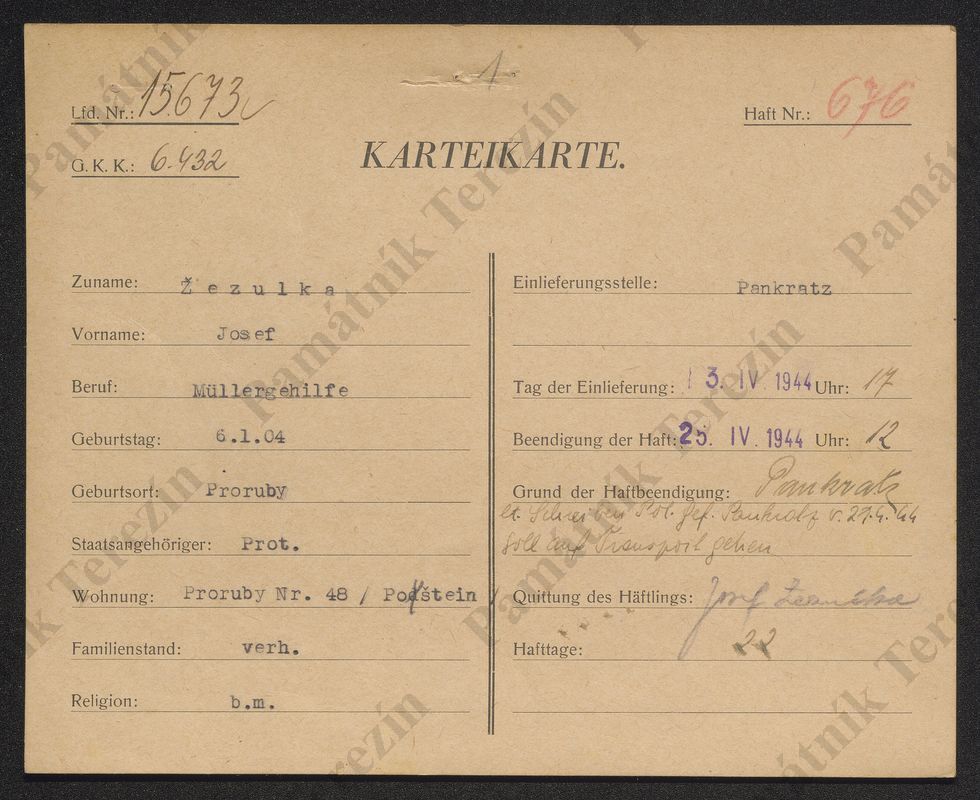 1
Lfd. Nr.: 15673
Haft Nr.: 676
G. K. K.: 6.432
KARTEIKARTE.
Zuname: Žezulka
Vorname: Josef
Beruf: Müllergehilfe
Geburtstag: 6.1.04
Geburtsort: Proruby
Staatsangehöriger: Prot.
Wohnung: Proruby Nr. 48 / Potštein /
Familienstand: verh.
Religion: b.m.
Einlieferungsstelle: Pankratz
Tag der Einlieferung: 3. IV. 1944 Uhr: 17
Beendigung der Haft: 25. IV. 1944 Uhr: 12
Grund der Haftbeendigung: Pankratz
lt. Pol. Gef. Pankratz v.
soll auf Transport gehen
Quittung des Häftlings: Josef
Hafttage: 22
Památník Terezín
Památník Terezín
Památník Terezín
Památník Terezín